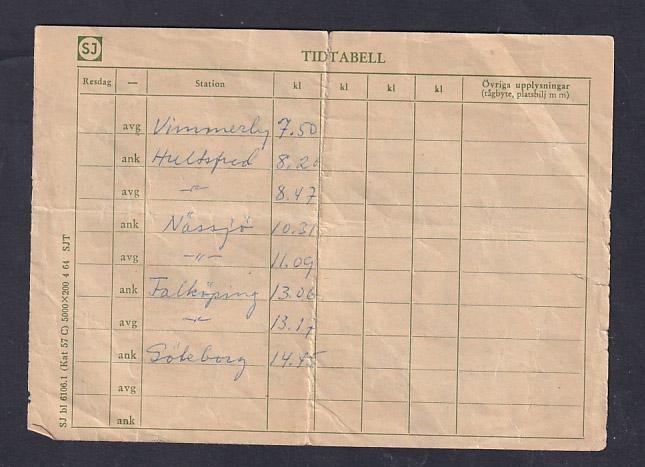 SJ
TIDTABELL
Resdag — Station kl kl kl kl Övriga upplysningar
(tågbyte, platsbilj m m)
avg Vimmerby 7.50
ank Hultsfred 8.20
avg —"— 8.47
ank Nässjö 10.31
avg —"— 11.09
ank Falköping 13.06
avg —"— 13.17
ank Göteborg 14.45
avg
ank
SJ bl 6106.1 (Kat 57 C) 5000×200 4 64 SJT